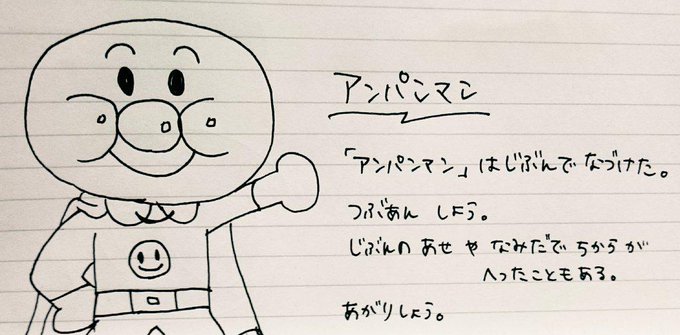 アンパンマン
「アンパンマン」はじぶんで なづけた。
つぶあん しよう。
じぶんの あせ や なみだで ちからが
へったこともある。
あがりしょう。